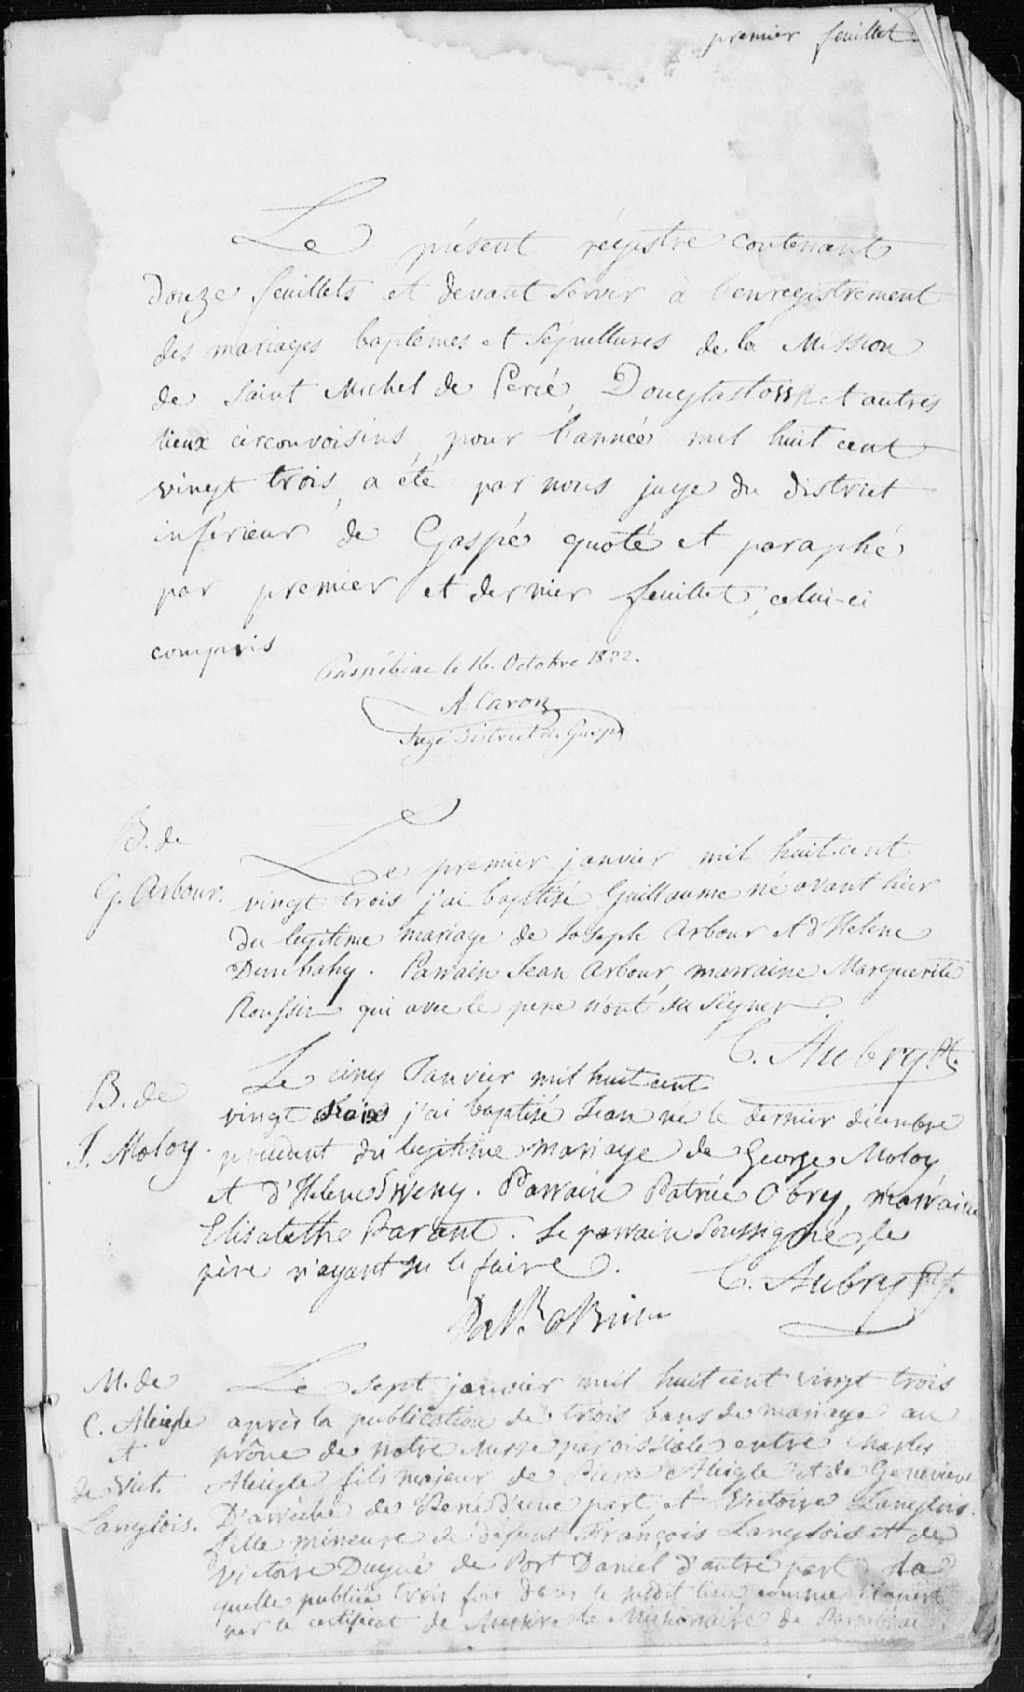 premier feuillet
Le présent régistre contenant
douze feuillets et devant servir à l'enregistrement
des mariages baptêmes et sépultures de la Mission
de Saint Michel de Percé, Douglastown et autres
lieux circonvoisins, pour l'année mil huit cent
vingt trois, a été par nous juge du district
inférieur de Gaspé quoté et paraphé
par premier et dernier feuillet, celui-ci
compris
Paspébiac le 16. Octobre 1822.
A Caron
Juge District de Gaspé
B. de
G. Arbour.
Le premier janvier mil huit cent
vingt trois j'ai baptisé Guillaume né avant hier
du legitime mariage de Joseph Arbour et d'Helene
Parrain Jean Arbour, marraine Marguerite
Roussin qui avec le pere n'ont su signer.
C. Aubry Pt.
B. de
J. Moloy.
Le cinq Janvier mil huit cent
vingt trois j'ai baptisé Jean né le dernier décembre
précédent du legitime mariage de George Moloy
et d'Helene Sweny. Parrain Patrice Obry, marraine
Elisabethe Parant. Le parrain soussigné, le
père n'ayant su le faire.
C. Aubry Pt.
Patk. OBrien
M. de
C.
et
de Vict.
Langlois.
Le sept janvier mil huit cent vingt trois
après la publication de trois bans de mariage au
prône de notre Messe paroissiale entre Charles
fils majeur de Pierre et de Genevieve
d'une part, et Victoire Langlois.
fille mineure de défunt François Langlois et de
Victoire Duguè de Port Daniel d'autre part la
quelle publiée trois fois dans le susdit lieu comme il apert
par le certificat de Messire le Missionnaire de